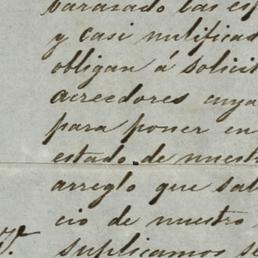 barazado las es
y casi nulificad
obligan á solicit
acreedores cuya
para poner en
estado de nuest
arreglo que sal
cio de nuestro
suplicamos se